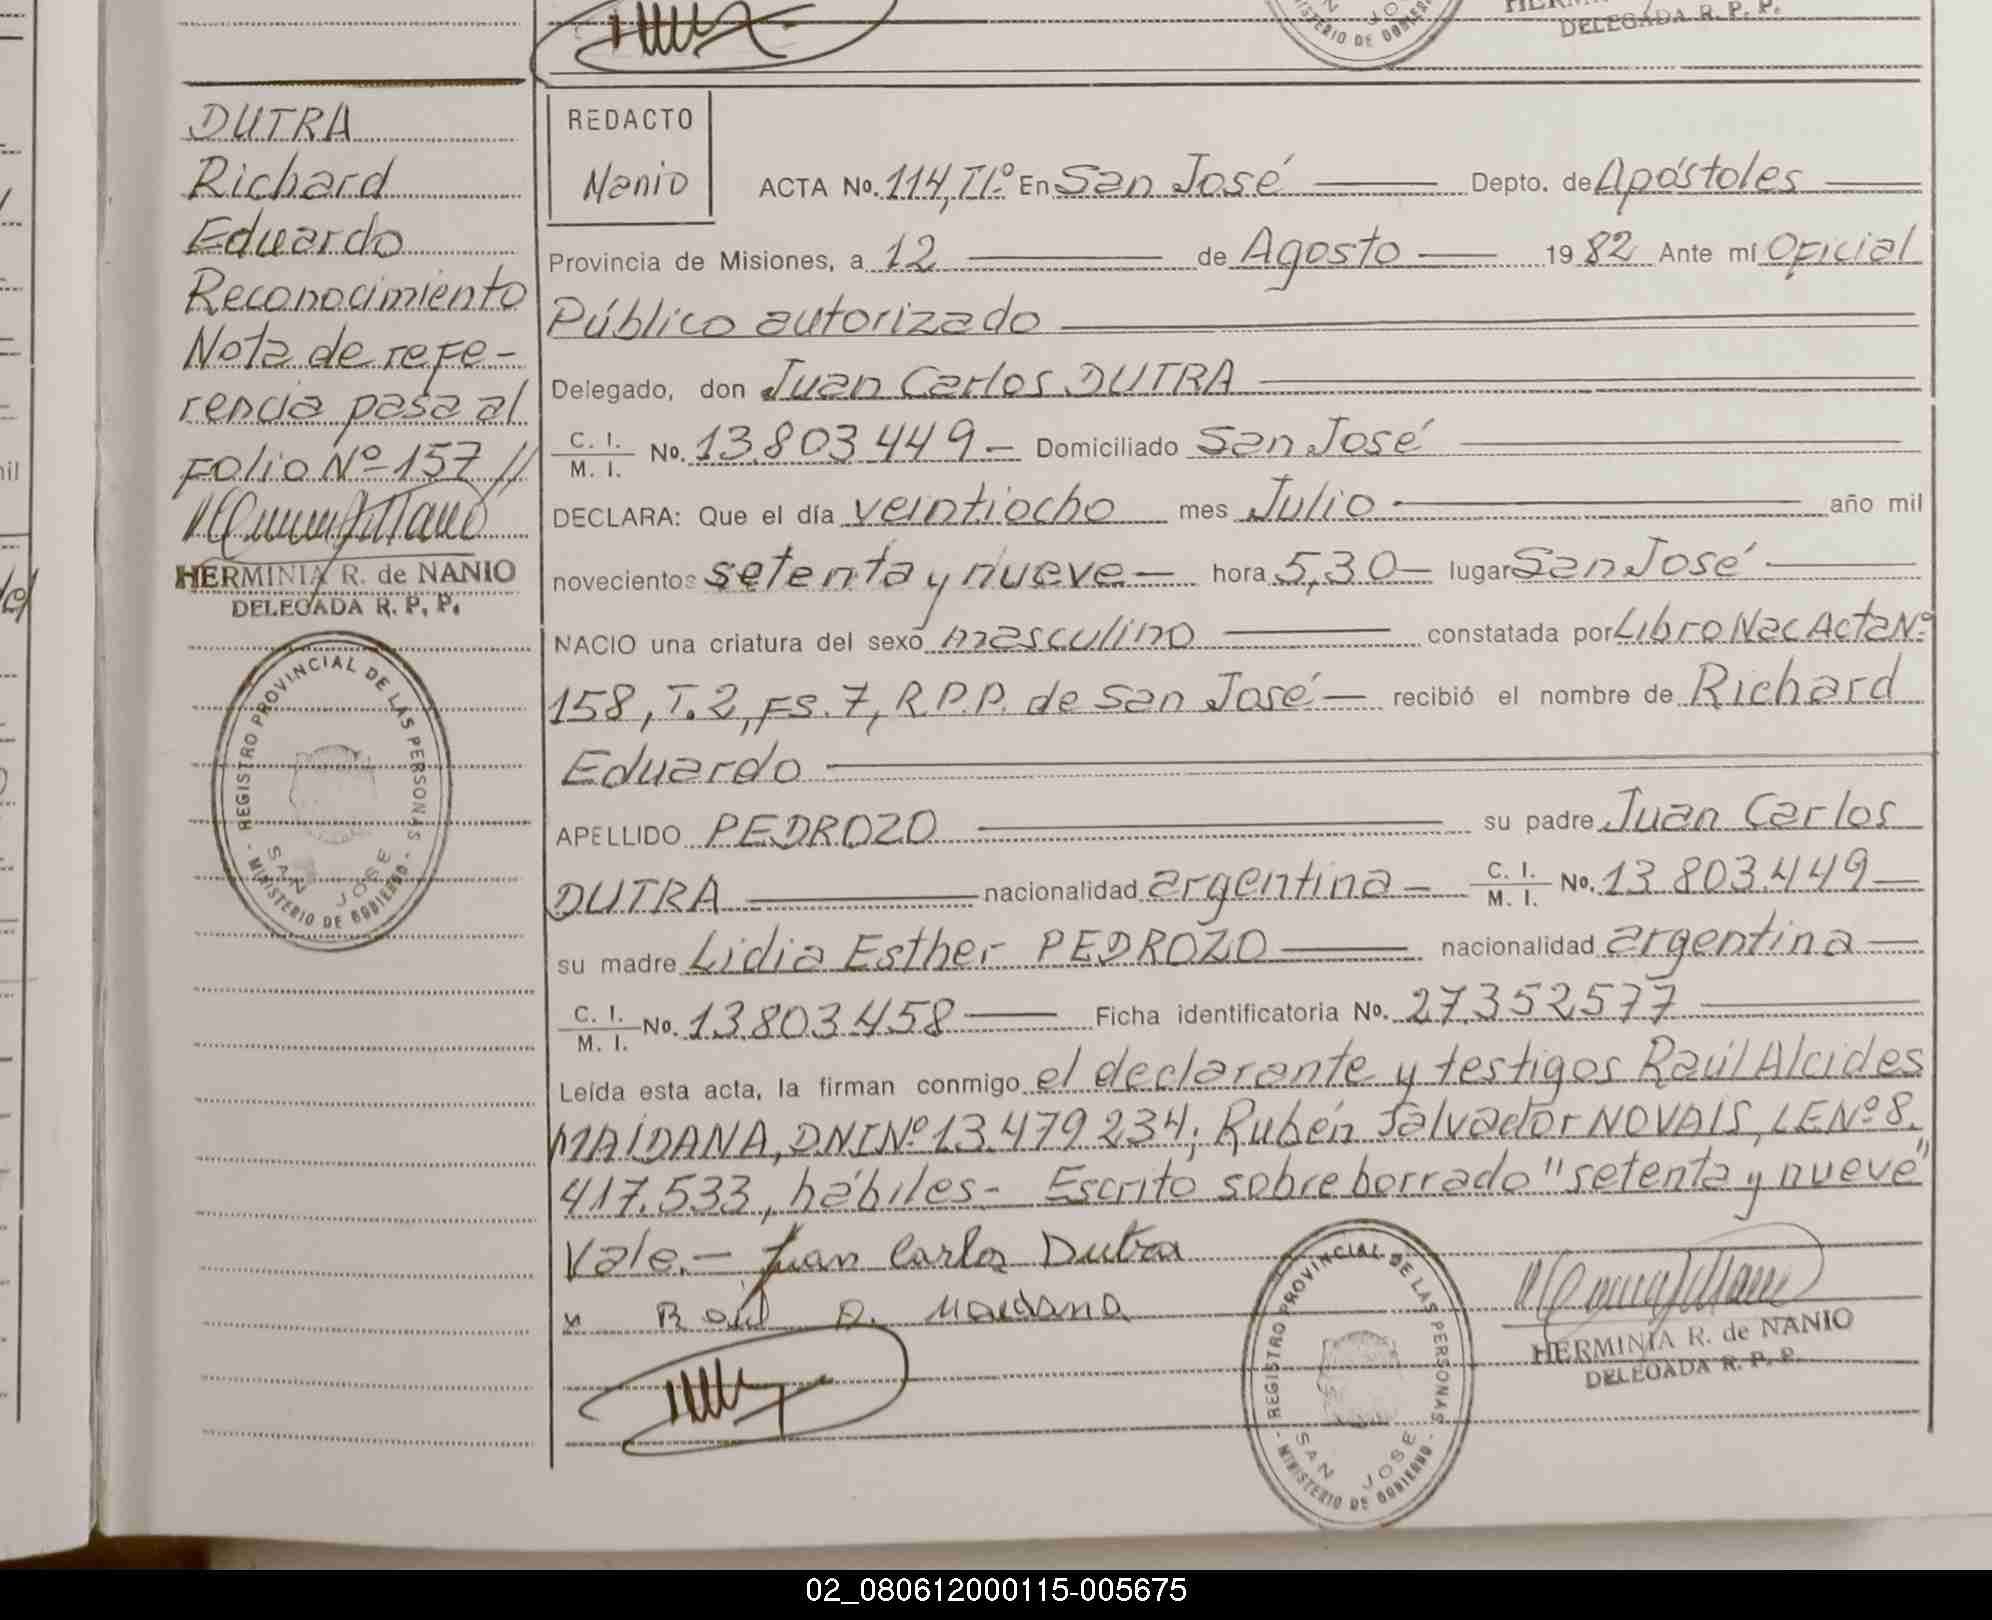 DELEGADA R. P. P.
MINISTERIO DE GOBIERNO
DUTRA
Richard
Eduardo
Reconocimiento
Nota de refe-
rencia pasa al
Folio Nº 157 //
HERMINIA R. de NANIO
DELEGADA R. P. P.
REGISTRO PROVINCIAL DE LAS PERSONAS
SAN JOSE
- MINISTERIO DE GOBIERNO -
REDACTO
Nanio
ACTA No. 114, TI.º En San José Depto. de Apóstoles
Provincia de Misiones, a 12 de Agosto 1982 Ante mí Oficial
Público autorizado
Delegado, don Juan Carlos DUTRA
C. I. / M. I. No. 13.803.449 - Domiciliado San José
DECLARA: Que el día veintiocho mes Julio año mil
novecientos setenta y nueve - hora 5,30 - lugar San José
NACIO una criatura del sexo masculino constatada por Libro Nac Acta Nº
158, T. 2, Fs. 7, R.P.P. de San José - recibió el nombre de Richard
Eduardo
APELLIDO PEDROZO su padre Juan Carlos
DUTRA nacionalidad argentina - C. I. / M. I. No. 13.803.449
su madre Lidia Esther PEDROZO nacionalidad argentina
C. I. / M. I. No. 13.803.458 Ficha identificatoria No. 27.352.577
Leída esta acta, la firman conmigo el declarante y testigos Raúl Alcides
MAIDANA, DNI Nº 13.479.234; Rubén Salvador NOVAIS, LE Nº 8.
417.533, hábiles - Escrito sobre borrado "setenta y nueve"
Vale. - Juan Carlos Dutra
Raúl A. Maidana
REGISTRO PROVINCIAL DE LAS PERSONAS
SAN JOSE
- MINISTERIO DE GOBIERNO -
HERMINIA R. de NANIO
DELEGADA R. P. P.
02_080612000115-005675